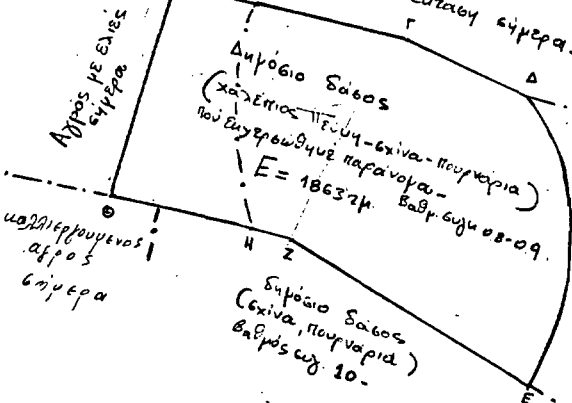 σήμερα.
Γ
Δ
Αγρός με ελιές
σήμερα
Δημόσιο δάσος
(χαλέπιος Πεύκη-σχίνα-πουρνάρια)
που εκχερσώθηκε παράνομα-
Βαθμ. συγκ 0.8-0.9.
Ε = 1863 τμ.
Θ
Η
Ζ
καλλιεργούμενος
αγρός
σήμερα
δημόσιο δάσος
(σχίνα, πουρνάρια)
βαθμός συγ. 10-
Ε